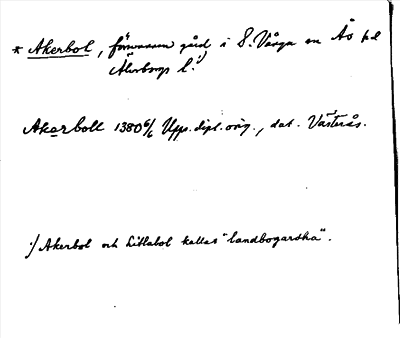 * Akerbol, försvunnen gård i S. Vånga sn Ås hd
Älvsborgs l.1)
Akarboll 1380 6/6 Upps. dipl. orig., dat. Västerås.
1) Akerbol och Litlabol kallas "landbogardha".